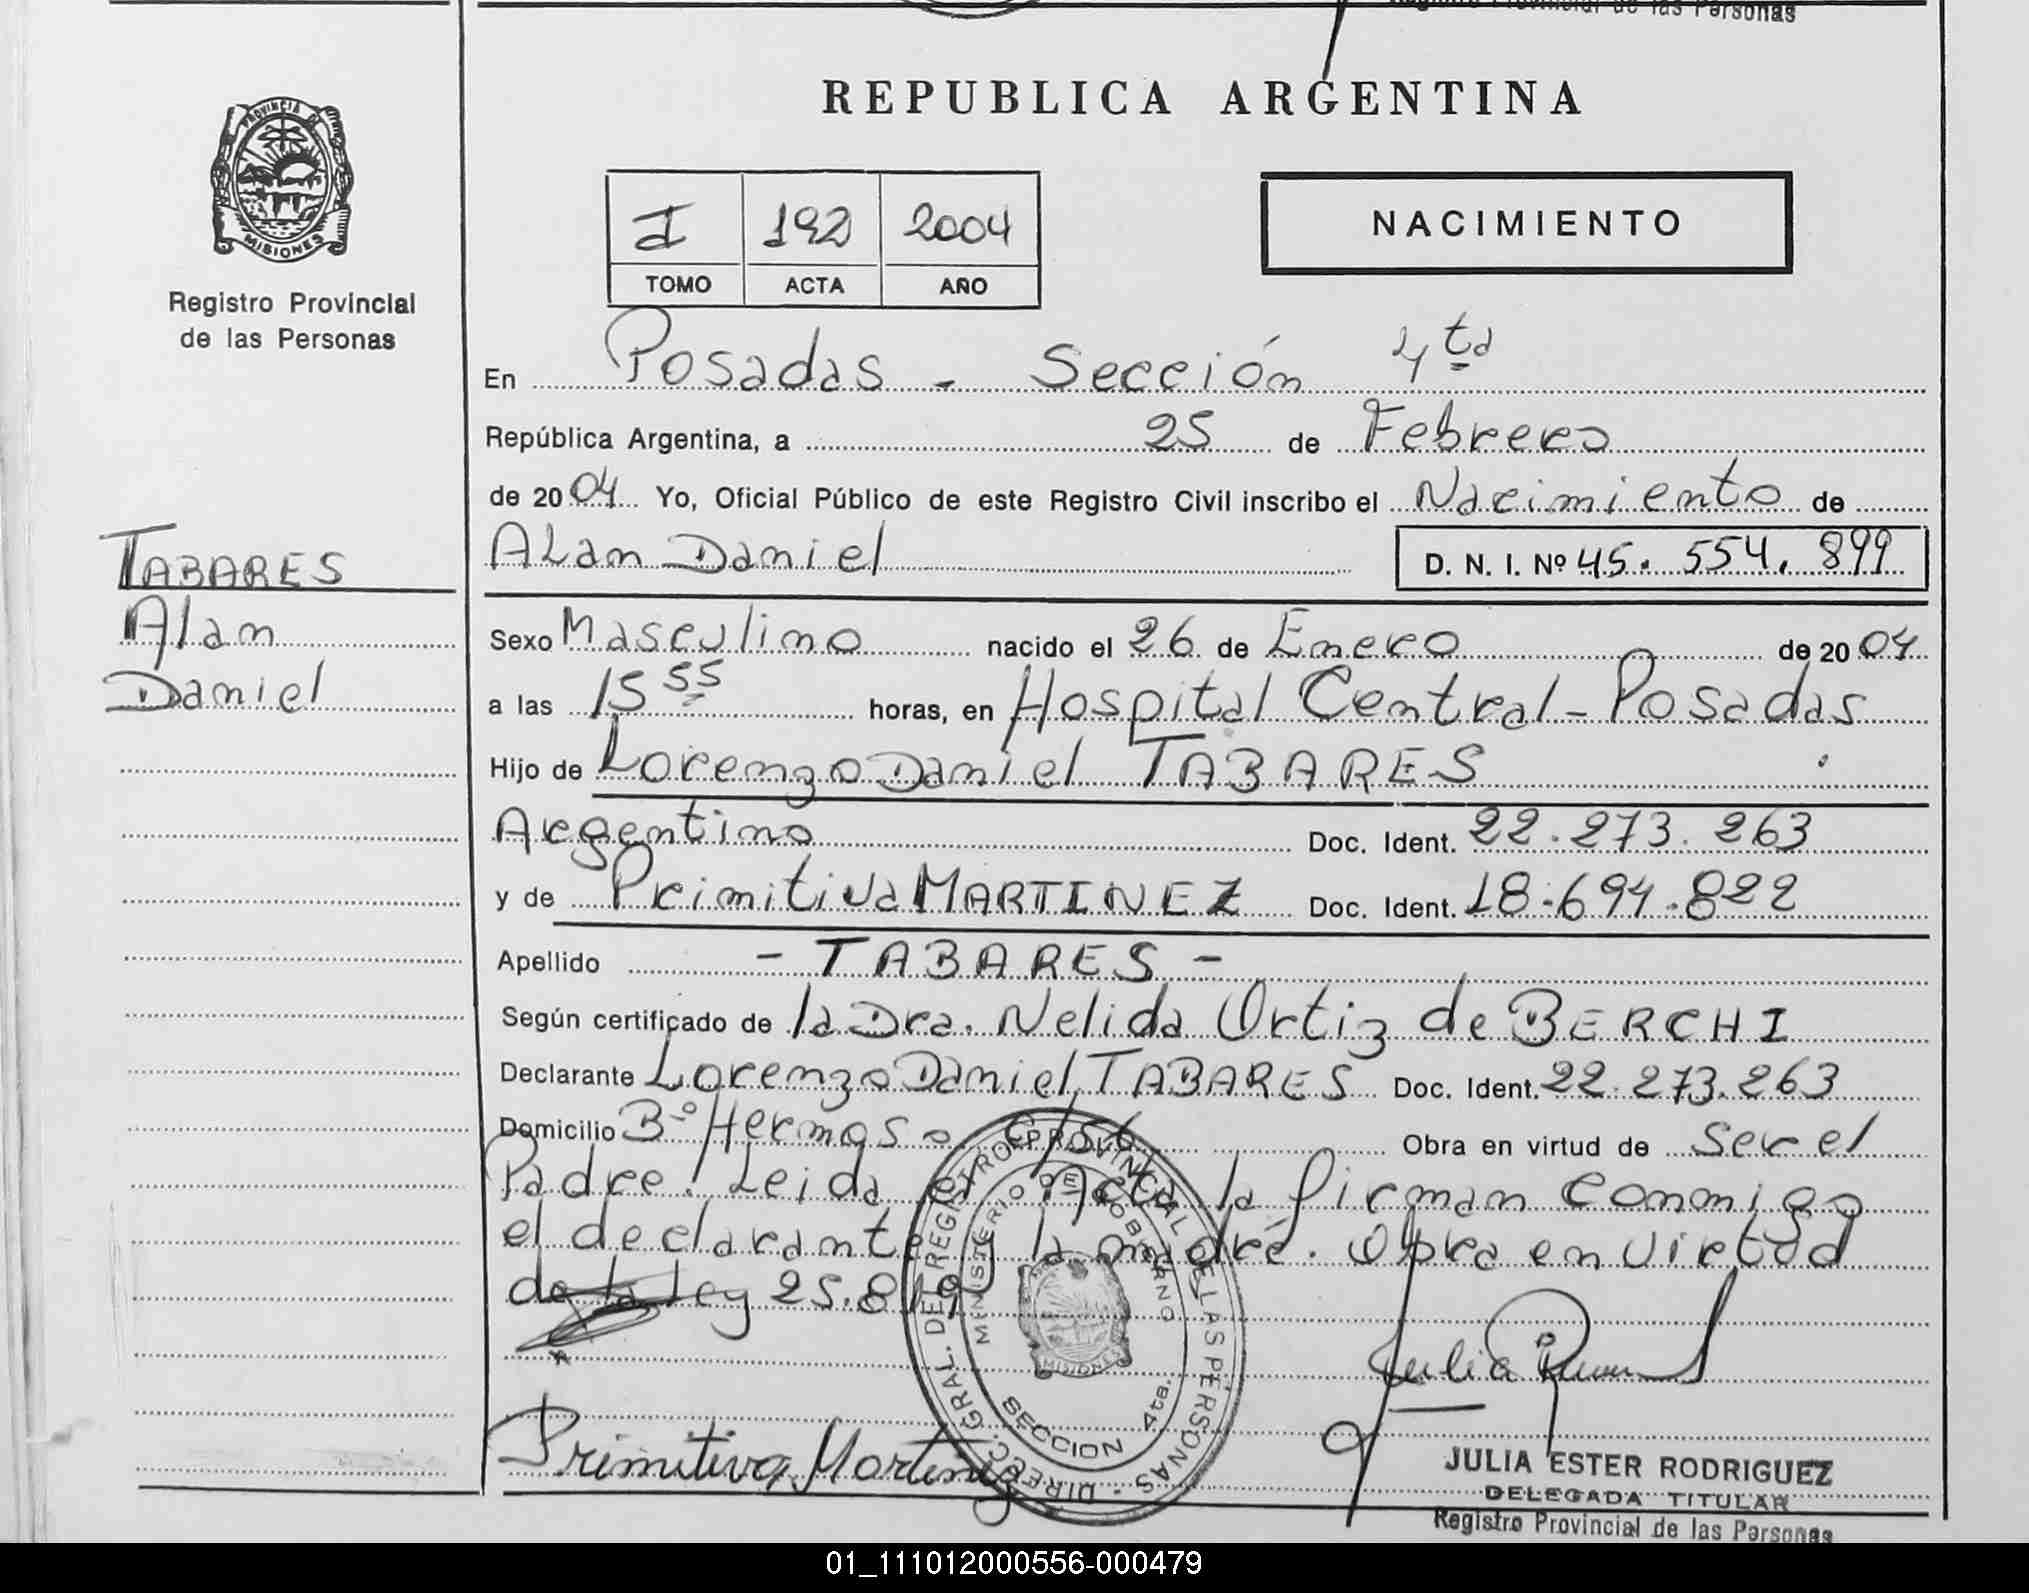 Registro Provincial de las Personas
REPUBLICA ARGENTINA
PROVINCIA DE
MISIONES
Registro Provincial
de las Personas
I 192 2004
TOMO ACTA AÑO
NACIMIENTO
En Posadas - Sección 4ta
República Argentina, a 25 de Febrero
de 2004 Yo, Oficial Público de este Registro Civil inscribo el Nacimiento de
Alan Daniel D. N. I. Nº 45.554.899
TABARES
Alan
Daniel
Sexo Masculino nacido el 26 de Enero de 2004
a las 15 55 horas, en Hospital Central - Posadas
Hijo de Lorenzo Daniel TABARES
Argentino Doc. Ident. 22.273.263
y de Primitiva MARTINEZ Doc. Ident. 18.694.822
Apellido - TABARES -
Según certificado de la Dra. Nelida Ortiz de BERCHI
Declarante Lorenzo Daniel TABARES Doc. Ident. 22.273.263
Domicilio Bº Hermoso C/56 Obra en virtud de ser el
Padre. Leida el Acta la firman conmigo
el declarante y la madre. Obra en virtud
de la Ley 25.819
DIRECC. GRAL. DEL REGISTRO PROVINCIAL DE LAS PERSONAS
MINISTERIO DE GOBIERNO
MISIONES
SECCION 4ta.
Primitiva Martinez
JULIA ESTER RODRIGUEZ
DELEGADA TITULAR
Registro Provincial de las Personas
01_111012000556-000479